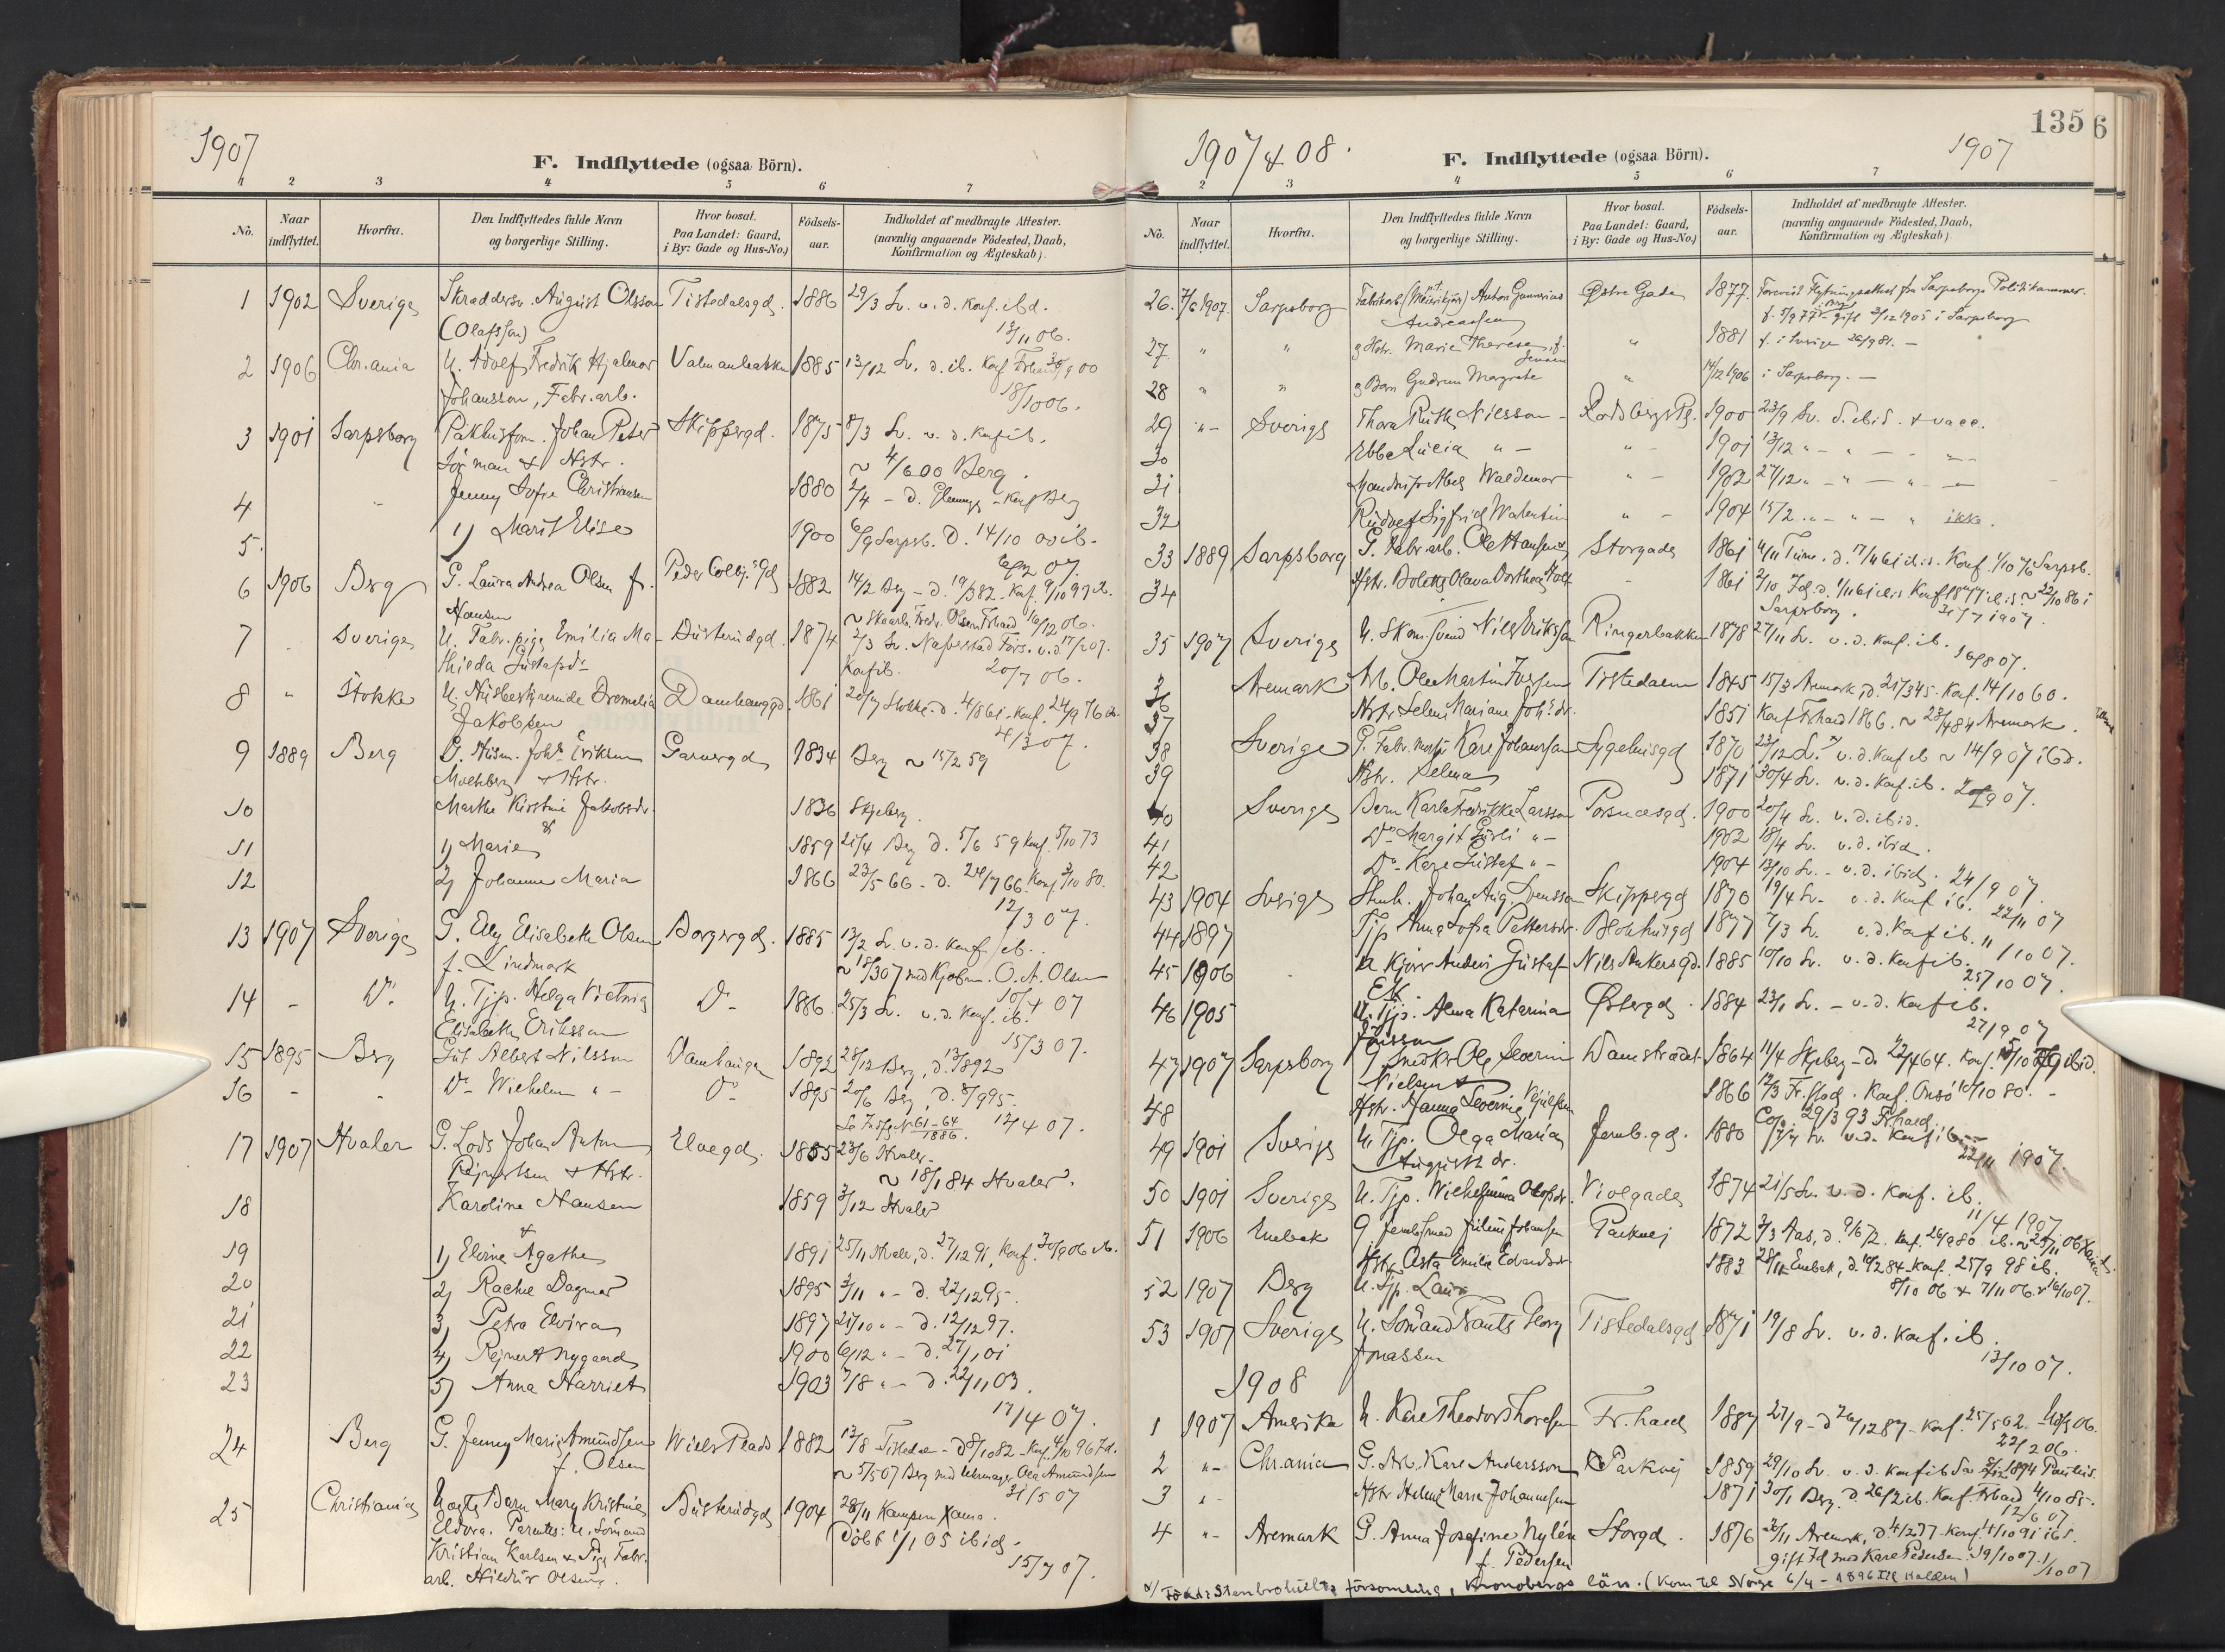 1907
F. Indflyttede (ogsaa Börn).
1 2 3 4 5 6 7
No. Naar indflyttet. Hvorfra. Den Indflyttedes fulde Navn og borgerlige Stilling. Hvor bosat. Paa Landet: Gaard, i By: Gade og Hus-No.) Födsels-aar. Indholdet af medbragte Attester. (navnlig angaaende Födested, Daab, Konfirmation og Ægteskab).
1 1902 Sverige Skræddersv. August Olsson Tistedalsgd. 1886 29/3 Sv. v. d. Konf. ibd.
(Olafsson) 13/11 06.
2 1906 Chr.ania U. Adolf Fredrik Hjalmar 1885 13/12 Sv. d. ib. Konf.
Johansson, Fabr. arb. 18/10 06.
3 1901 Sarpsborg Pakhusform. Johan Peter Skippergd. 1875 8/3 Sv. v. d. Konf ib.
& Hstr. ~ 4/6 00 Berg.
4 Jenny Sofie Christiansen 1880 2/4 - d. - Konf Berg
5. 1) Marit Elise 1900 6/9 Sarpsb. D. 14/10 00 ib.
07.
6 1906 Berg G. Laura Andrea Olsen f. Peder Colbj.s Gd 1882 14/2 Berg - d. 19/3 82 - Konf. 9/10 97 ib.
Hansen ~ Fredr. Olsen Frhald 16/12 06.
7 Sverige U. Fabr. pige Emilia Ma- 1874 2/3 Sv.
thilda Gustafsdr Konf ib. 20/7 06.
8 " Stokke U. Husbestyrerinde Damhauggd. 1861 20/7 Stokke - d. 4/8 61 - Konf. 24/9 76 ib.
Jakobsen 4/3 07.
9 1889 Berg G. Husm. Johs Eriksen Garvergd 1834 Berg ~ 15/2 59
& Hstr.
10 Marthe Kirstine Jakobsdr. 1836 Skjeberg.
&
11 1) Marie 1859 21/4 Berg d. 5/6 59 Konf. 5/10 73
12 2) Johanne Maria 1866 23/5 66 - d. 24/7 66. Konf 3/10 80.
12/3 07.
13 1907 Sverige G. Elly Elisabeth Olsen Borgergd. 1885 12/2 Sv. v. d. Konf. ib.
f. Lindmark ~ 18/3 07 med Kjøbm. O. A. Olsen
14 - Do U. Tjp. Helga Victoria Do 1886. 25/3 Sv. v. d. Konf. ib. 10/4 07
Elisabeth Eriksson 15/3 07.
15 1895 Berg Gut Albert Nilsson Damhaugen 1892 28/12 Berg, d. 13/8 92
16 - " Do Wilhelm " - Do 1895 20/6 Berg, d. 8/9 95.
Se Indfl. No 61-64 1886. 12/4 07.
17 1907 Hvaler G. Lods Johan Anton Elvegd. 1855 23/6 Hvaler -
& Hstr. ~ 18/1 84 Hvaler.
18 Karoline Hansen 1859 3/12 Hvaler
&
19 1) Elvine Agathe 1891 25/11 Hvaler, d. 27/12 91, Konf. 30/9 06 ib.
20 2) Rachel Dagmar 1895 3/11 " - d. 22/12 95.
21 3) Petra Elvira 1897 21/10 " - d. 12/12 97.
22 4) Rejnert Nygaard 1900 6/12 " - d. 27/1 01
23 5) Anna Harriet 1903 7/8 " - d. 22/11 03.
17/4 07.
24 Berg G. Jenny Marie Amundsen Wiels Plads 1882 13/8 Tistedalen - D 8/10 82 - Konf. 4/10 96 Id.
f. Olsen ~ 5/5 07 Berg med Ole Amundsen
31/5 07
25 Christiania Uægte Barn Mary Kristine 1904 28/11 Kampen Xania.
Eldora. Parentes: U. Sömand Döbt 1/1 05 ibid.
Kristian Karlsen & Pige Fabr. 15/7 07.
arb. Hildur Olsen.
1907 & 08.
F. Indflyttede (ogsaa Börn).
1907
135
6
2 3 4 5 6 7
No. Naar indflyttet. Hvorfra. Den Indflyttedes fulde Navn og borgerlige Stilling. Hvor bosat. Paa Landet: Gaard, i By: Gade og Hus-No.) Födsels-aar. Indholdet af medbragte Attester. (navnlig angaaende Födested, Daab, Konfirmation og Ægteskab)
26. 7/6 1907. Sarpsborg Anton Gunerius Østre Gade 1877. Forevist Flytningsattest fra Sarpsborgs Politikammer.
Andreassen f. 5/9 77 gift 3/12 1905 i Sarpsborg
27. " " & Hstr. Marie Therese f. " 1881 f. i Sverige 26/9 81. -
Jensen
28 " " & Barn Gudrun Margrete " 14/12 1906 i Sarpsborg. -
29 " - Sverige Thora Ruth Nilsson - Rødsbergs Pl. 1900 23/9 Sv. d. ibid. + vacc.
30 Ebba Lucia " - " - 1901 13/12 " - " -
31 Abel Waldemar " - 1902 27/12 " - " - " -
32 Rudolf Sigfrid Walentin " - 1904 15/2 " - " - " ikke.
33 1889 Sarpsborg G. Fabr. arb. Ole Hansen & Storgade 1861 4/11 Tune. d. 17/11 61 ibid. Konf. 1/10 76 Sarpsb.
34 Hstr. Bolette Olava Dorthea - 1861 2/10 Id. d. 1/11 61 ibid. Konf 1877 ibid ~ 22/10 86 i
Sarpsborg. 31/7 1907.
35 1907 Sverige U. Skom. svend Nils Eriksson Ringerbakken 1878 27/11 Sv. v. d. Konf. ib.
16/8 07.
36 Aremark Arb. Ole Martin Tistedalen 1845 15/3 Aremark, d. 21/3 45. Konf. 14/10 60.
37 Hstr. Mariane Johsdr. 1851 Konf Frhald 1866. ~ 23/4 84 Aremark.
38 Sverige G. Fabr. Karl Johansson Sygehusgd 1870 23/12 Sv. v. d. Konf ib ~ 14/9 07 ibd.
39 Hstr. Selma 1871 30/4 Sv. v. d. Konf. ib. 20/9 07.
40 Sverige Barn Karla Fredrikke Larsson 1900 20/4 Sv. v. d. ibid.
41 Do Margit " - 1902 18/4 Sv. v. d. ibid.
42 Do Karl Gustaf " - 1904 13/10 Sv. - v. d. ibid. 24/9 07.
43 1904 Sverige Stenh. Johan Aug. Svensson Skippergd 1870 19/4 Sv. v. d. Konf ib. 22/11 07
44 1897 Tjp Anna Sofia Pettersdr. 1877 7/3 Sv. v. d. Konf ib. 11/10 07.
45 1906 U Kjører Anders Gustaf Nils Ankersgd. 1885 10/10 Sv. v. d. Konf ib.
25/10 07.
46 1905 U. Tjp. Alma Katarina Østergd. 1884 23/1 Sv. - v. d. Konf ib.
Jonsson 27/9 07
47 1907 Sarpsborg G Snedker Ole Severin Damstrædet 1864 11/4 Skjeberg - D. 22/4 64. Konf. /10 79 ibid.
Nielsen &
48 Hstr. Hanna Severine 1866 12/3 Fr.stad. Konf. Onsö 10/10 80. -
Cop. 29/3 93 Frhald.
49 1901 Sverige U. Tjp. Olga Maria Jernb. gd. 1880 Sv. v. d. Konf ib
Augustsdr. 22/11 1907.
50 1901 Sverige U. Tjp. Wilhelmina Olofsdr. Violgade 1874 21/5 Sv. v. d. Konf. ib.
11/4 1907
51 1906 Enebak G. Johansen Parkvej 1872 3/3 Aas, d. 9/6 72. Konf. 26/9 86 ib.
Hstr Asta Emilie Edvardsdr. 1883 28/11 Enebak, d. 84 - Konf. 25/9 98 ib.
52 1907 Berg U. Tjp. Laura 8/10 06 & 7/11 06. & 16/10 07.
53 1907 Sverige U. Sömand Georg Tistedalsgd 1871 19/8 Sv. v. d. Konf. ib.
Jonassen 13/10 07.
1908
1 1907 Amerika U. Karl Theodor Thoresen Fr.hald 1887 27/9 - d 26/12 87 - Konf. 25/5 02.
22/2 06.
2 " - Chr.ania G. Arb. Karl Andersson Parkvej 1859 29/10 Sv. v. d. Konf ib 1894 Paulus.
3 " - Hstr Helene Marie Johannesen 1871 30/1 Berg. D. 26/2 ib. Konf. Frhald 4/10 85.
12/6 07
4 " - Aremark G. Anna Josefine Nylén Storgd. 1876 /11 Aremark, D 4/2 77 - Konf. 11/10 91 ibd.
f. Pedersen gift Id med Karl Pedersen. 19/10 07. 1/10 07
x/ Född i Stenbrohults församling, Kronobergs län. (Kom til Norge 6/4 - 1896 til Halden)